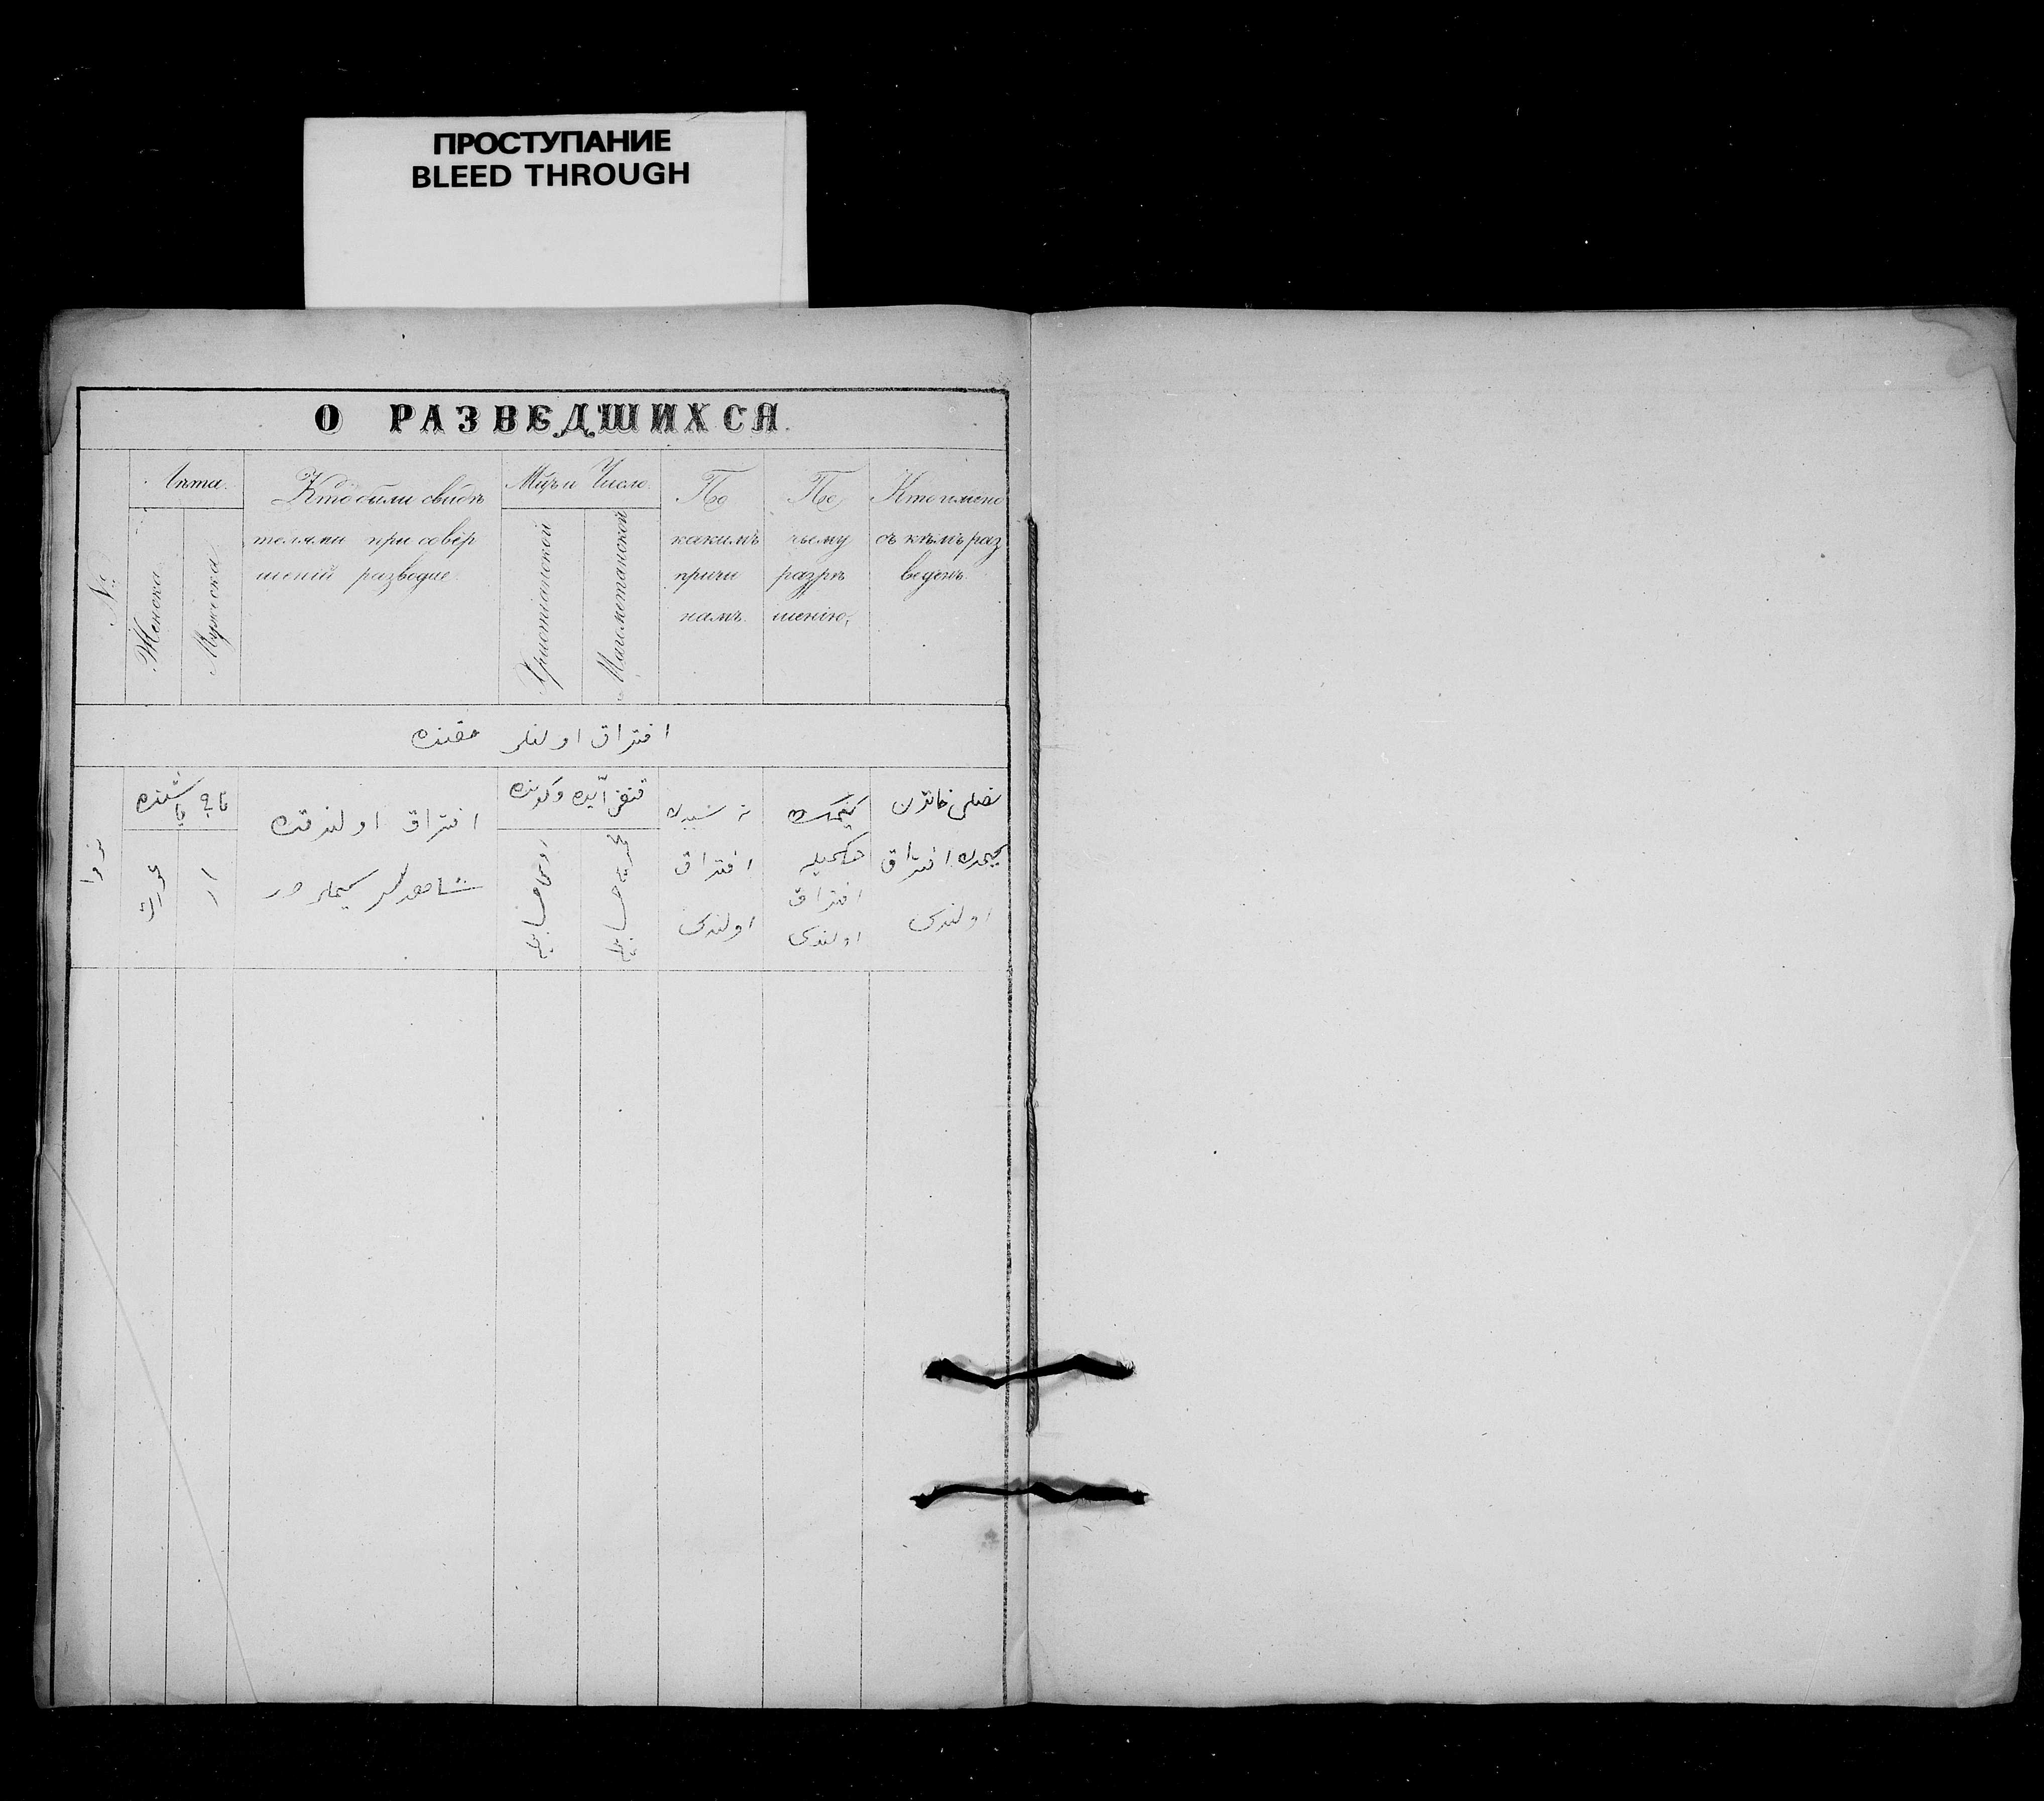 ПРОСТУПАНИЕ
BLEED THROUGH
О РАЗВЕДШИХСЯ.
№
Лѣта.
Женска
Мужеска
Кто были свидѣ
телями при совер
шеній разводие.
Мцъ и Число.
Христіанской
Магометанской
По
какимъ
причи
намъ.
По
чьему
разрѣ
шенію,
Кто имено
съ кѣмъ раз
веденъ.
افتراق اولنلر حقنده
افتراق اولندقده
شاهدلر كيملردر
افتراق
اولندى
افتراق
اولندى
افتراق
اولندى